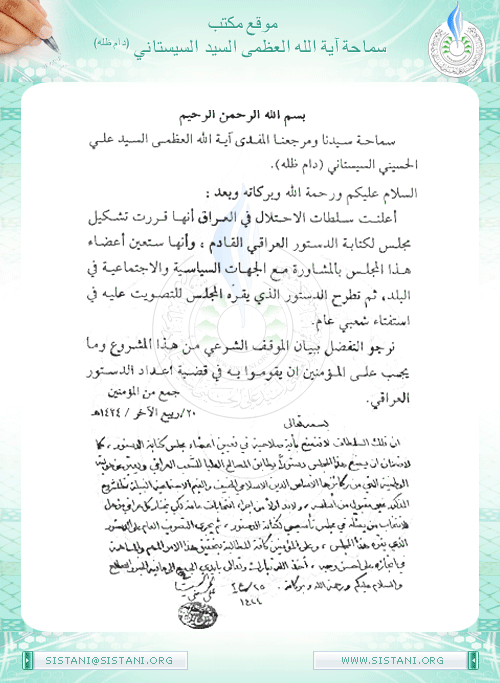 موقع مكتب
سماحة آية الله العظمى السيد السيستاني (دام ظله)
بسم الله الرحمن الرحيم
سماحة سيدنا ومرجعنا المفدى آية الله العظمى السيد علي
الحسيني السيستاني (دام ظله).
السلام عليكم ورحمة الله وبركاته وبعد :
أعلنت سلطات الاحتلال في العراق أنها قررت تشكيل
مجلس لكتابة الدستور العراقي القادم ، وأنها ستعين أعضاء
هذا المجلس بالمشاورة مع الجهات السياسية والاجتماعية في
البلد، ثم تطرح الدستور الذي يقره المجلس للتصويت عليه في
استفتاء شعبي عام.
نرجو التفضل ببيان الموقف الشرعي من هذا المشروع وما
يجب على المؤمنين ان يقوموا به في قضية اعداد الدستور
العراقي.
جمع من المؤمنين
٢٠/ربيع الآخر / ١٤٢٤هـ
بسمه تعالى
ان تلك السلطات لا تتمتع بأية صلاحية في تعيين أعضاء مجلس كتابة الدستور ، كما
لا ضمان ان يضع هذا المجلس دستوراً يطابق المصالح العليا للشعب العراقي ويعبّر عن هويته
الوطنية التي من ركائزها الأساس الدين الاسلامي الحنيف والقيم الاجتماعية النبيلة ، فالمشروع
المذكور غير مقبول من أساسه ، ولابد أولاً من اجراء انتخابات عامة لكي يختار كل عراقي مؤهل
للانتخاب من يمثله في مجلس تأسيسي لكتابة الدستور ، ثم يجري التصويت العام على الدستور
الذي يقره هذا المجلس ، وعلى المؤمنين كافة المطالبة بتحقيق هذا الأمر المهم والمساهمة
في انجازه على أحسن وجه ، أخذ الله تبارك وتعالى بأيدي الجميع الى ما فيه الخير والصلاح
والسلام عليكم ورحمة الله وبركاته .
SISTANI@SISTANI.ORG
WWW.SISTANI.ORG